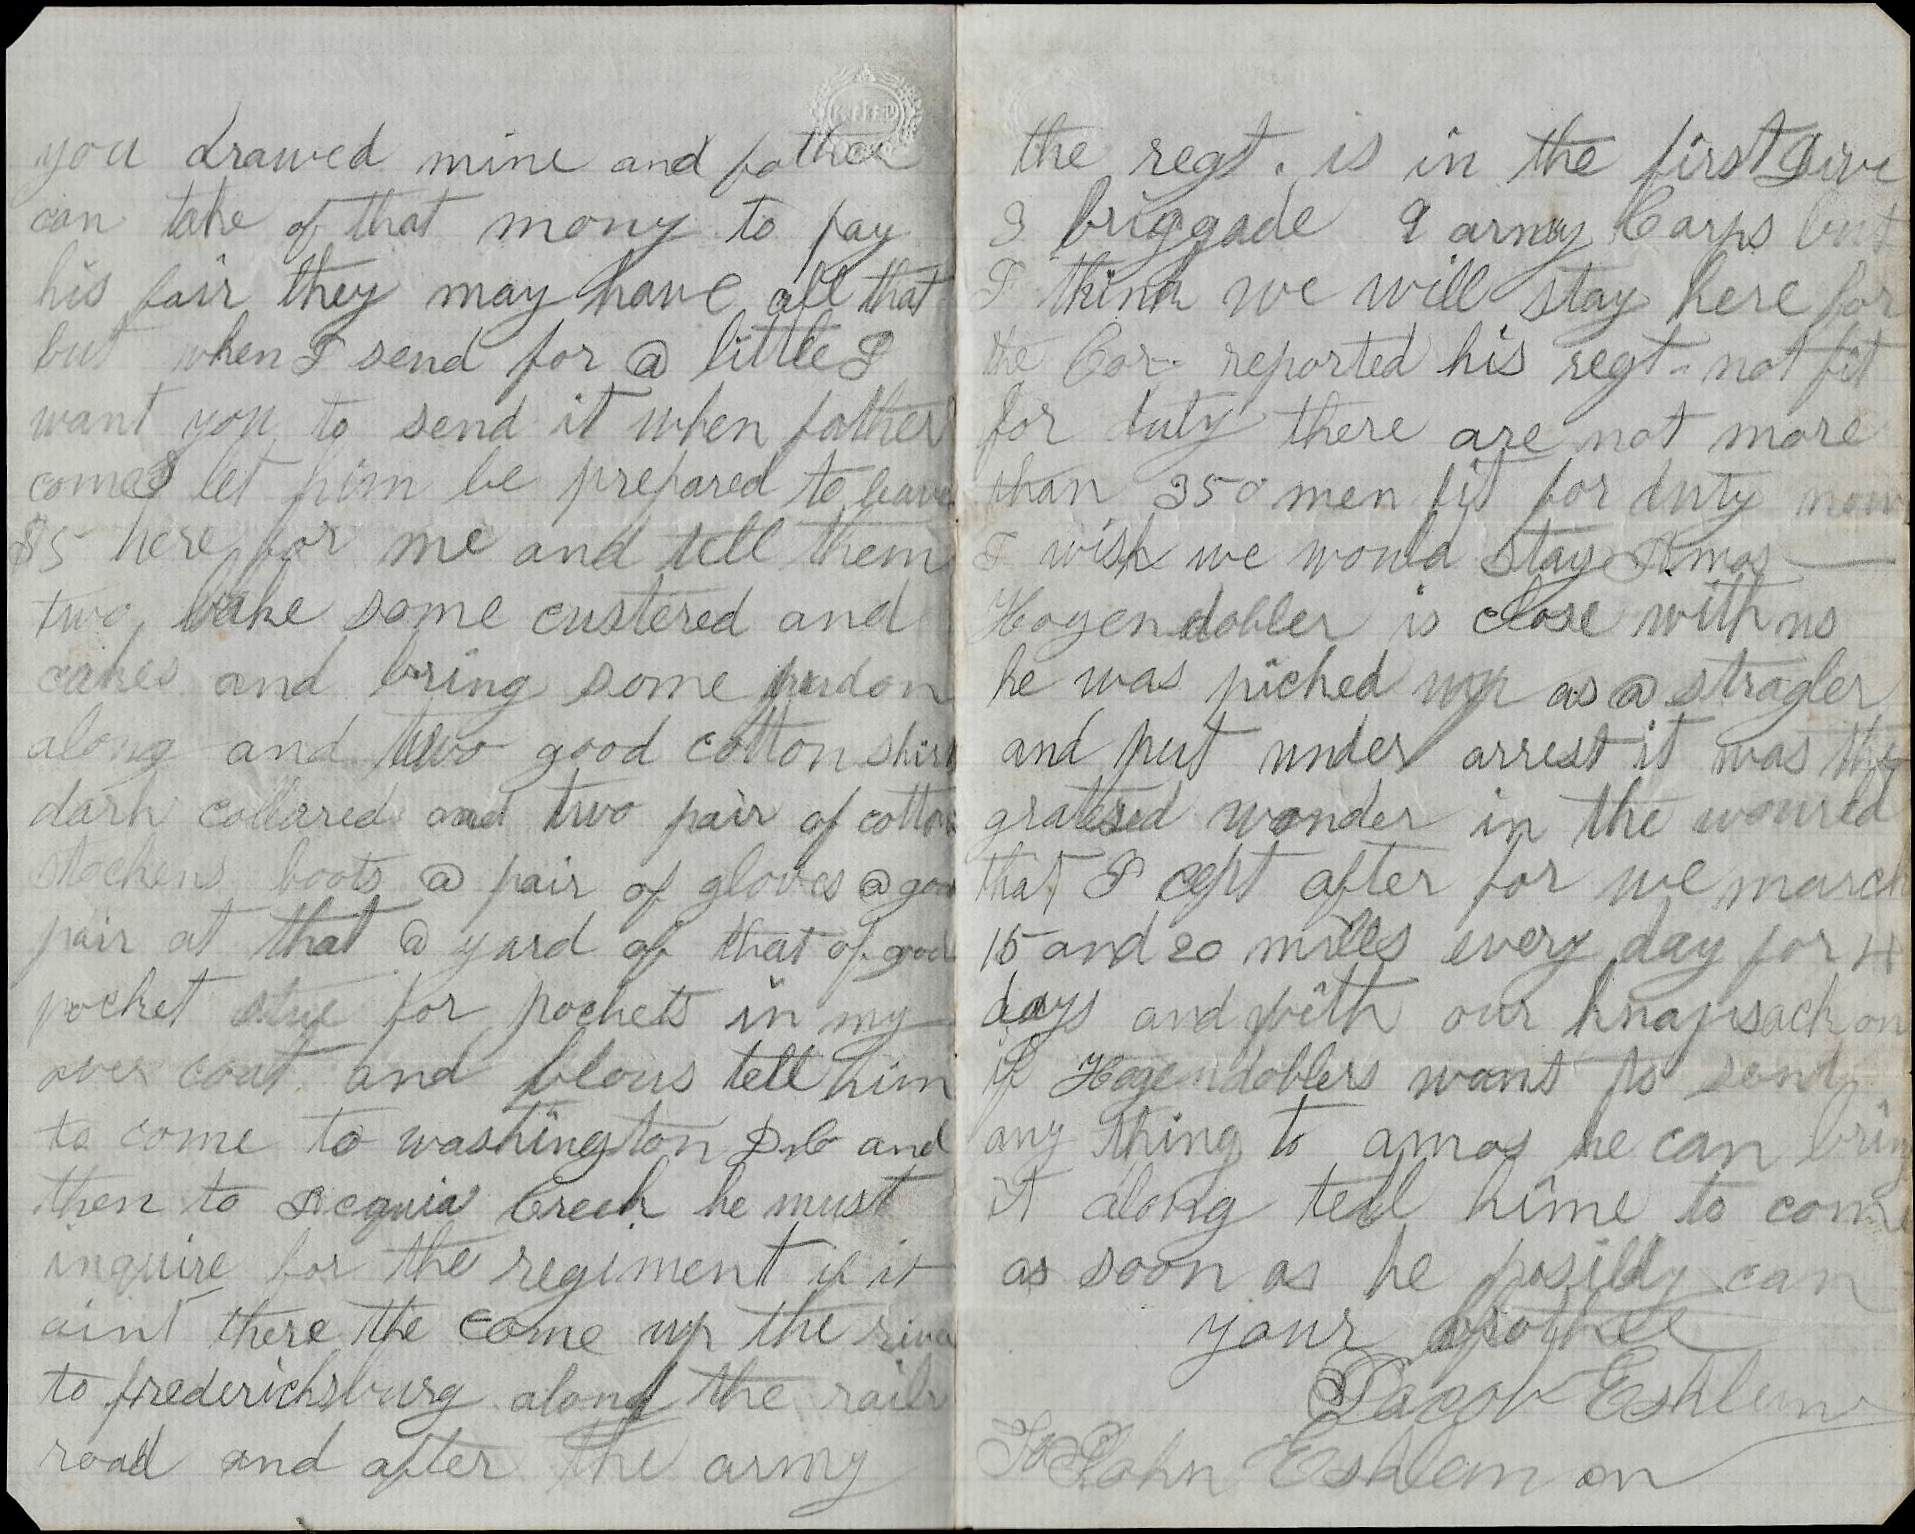 you drawed mine and father
can take of that mony to pay
his fair they may have all that
but when I send for @ little I
want you to send it when father
comes let him be prepared to leave
$5 here for me and tell them
two bake some custered and
cakes and bring some pudon
along and two good cotton shirts
dark collared and two pair of cotton
stockens boots @ pair of gloves @ good
pair at that @ yard of that of good
pocket for pockets in my
over coat and blous tell him
to come to washington D.C and
then to Acquia Creek he must
inquire for the regiment if it
aint there the come up the river
to frederichsburg along the rail
road and after the army
the regt. is in the first Dive
3 briggade 9 army Corps but
I think we will stay here for
the Cor. reported his regt. not fit
for duty there are not more
than 350 men fit for duty now
I wish we would stay Amos
Hogendobler is close with us
he was picked up as @ stragler
and put under arrest it was the
gratesed wonder in the woured
that I cept after for we march
15 and 20 milles every day for 4
days and with our knapsack on
if Hogendoblers want to send
any thing to amos he can bring
it along tell hime to come
as soon as he posilbly can
your brother
Jacob Eshleman
To John Eshleman